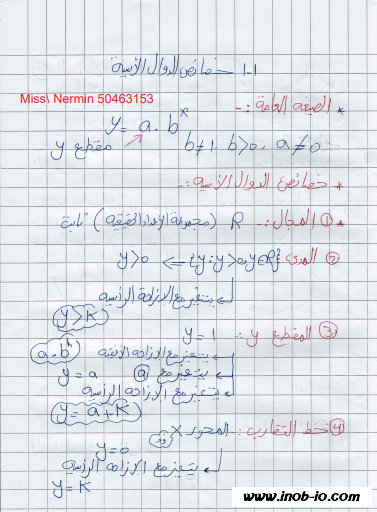 1-1 خصائص الدوال الأسية
Miss\ Nermin 50463153
* الصيغه العامة :-
y = a . bˣ
مقطع y
b≠1, b>0, a≠0
* خصائص الدوال الأسيه :-
* ① المجال :- R (مجموعة الاعداد الحقيقية) ثابت
② المدى {y : y>0, y∈R} ⇐ y>0
يتغير مع الازاحة الرأسية
y>K
③ المقطع y :- y = 1
يتغير مع الازاحة الأفقية
(a.bʰ)
يتغير مع a y = a
يتغير مع الازاحة الرأسية
y = a+K
④ خط التقارب : المحور x
y=0
يتغير مع الازاحة الرأسية
y = K
www.inob-io.com